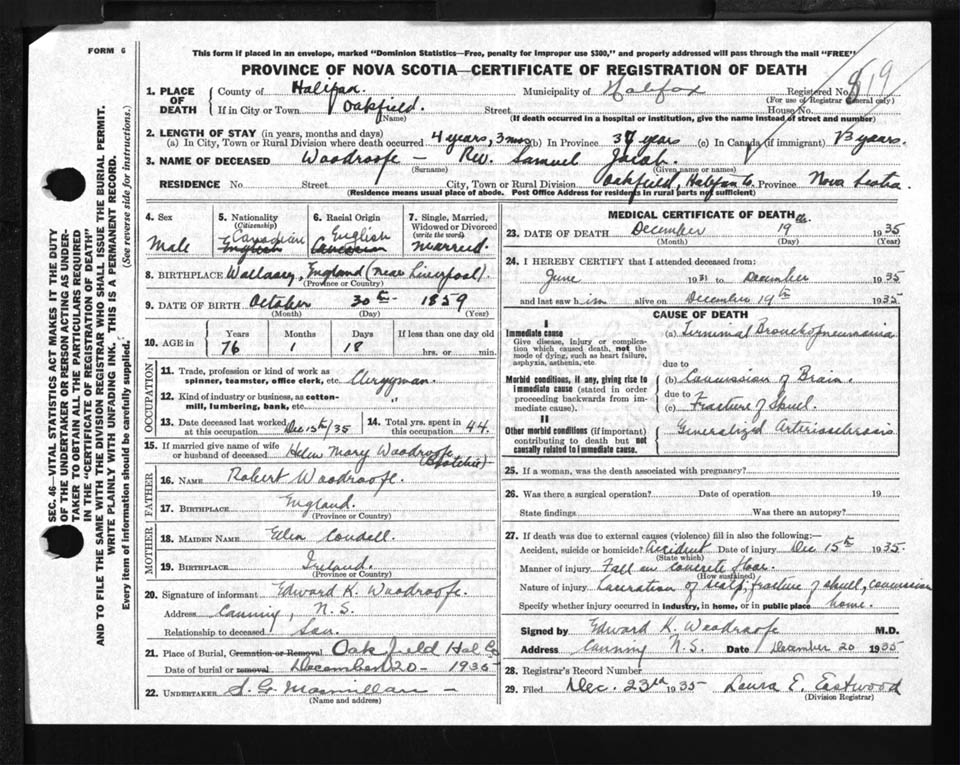 FORM 6
This form if placed in an envelope, marked "Dominion Statistics—Free, penalty for improper use $300," and properly addressed will pass through the mail "FREE"
PROVINCE OF NOVA SCOTIA—CERTIFICATE OF REGISTRATION OF DEATH
SEC. 46—VITAL STATISTICS ACT MAKES IT THE DUTY
OF THE UNDERTAKER OR PERSON ACTING AS UNDER-
TAKER TO OBTAIN ALL THE PARTICULARS REQUIRED
IN THE "CERTIFICATE OF REGISTRATION OF DEATH"
AND TO FILE THE SAME WITH THE DIVISION REGISTRAR WHO SHALL ISSUE THE BURIAL PERMIT.
WRITE PLAINLY WITH UNFADING INK. THIS IS A PERMANENT RECORD.
Every item of information should be carefully supplied. (See reverse side for instructions.)
1. PLACE OF DEATH County of Halifax. Municipality of Halifax Registered No. 819
(For use of Registrar General only)
If in City or Town Oakfield. Street House No.
(Name) (If death occurred in a hospital or institution, give the name instead of street and number)
2. LENGTH OF STAY (in years, months and days)
(a) In City, Town or Rural Division where death occurred 4 years, 3 mos (b) In Province 34 years (c) In Canada (if immigrant) 43 years.
3. NAME OF DECEASED Woodroofe — Rev. Samuel Jacob.
(Surname) (Given name or names)
RESIDENCE No Street City, Town or Rural Division Oakfield, Halifax Co. Province Nova Scotia.
(Residence means usual place of abode. Post Office Address for residents in rural parts not sufficient)
4. Sex Male
5. Nationality (Citizenship) Canadian English
6. Racial Origin English Caucasian
7. Single, Married, Widowed or Divorced (write the word) Married.
8. BIRTHPLACE Wallasey, England (near Liverpool).
(Province or Country)
9. DATE OF BIRTH October 30th 1859
(Month) (Day) (Year)
10. AGE in Years 76 Months 1 Days 18 If less than one day old hrs. or min.
OCCUPATION
11. Trade, profession or kind of work as spinner, teamster, office clerk, etc. Clergyman.
12. Kind of industry or business, as cotton-mill, lumbering, bank, etc. "
13. Date deceased last worked at this occupation Dec 15th/35
14. Total yrs. spent in this occupation 44.
15. If married give name of wife or husband of deceased Helen Mary Woodroofe
FATHER
16. NAME Robert Woodroofe.
17. BIRTHPLACE England.
(Province or Country)
MOTHER
18. MAIDEN NAME Ellen Condell.
19. BIRTHPLACE Ireland.
(Province or Country)
20. Signature of informant Edward K. Woodroofe.
Address Canning, N.S.
Relationship to deceased Son.
21. Place of Burial, Cremation or Removal Oakfield Hal Co
Date of burial or removal December 20 - 1935
22. UNDERTAKER S. G. Macmillan —
(Name and address)
MEDICAL CERTIFICATE OF DEATH
23. DATE OF DEATH December 19 th. 1935
(Month) (Day) (Year)
24. I HEREBY CERTIFY that I attended deceased from:
June 1931 to December 1935
and last saw him alive on December 19th 1935.
CAUSE OF DEATH
Immediate cause
Give disease, injury or complication which caused death, not the mode of dying, such as heart failure, asphyxia, asthenia, etc.
(a) Terminal Bronchopneumonia
due to
Morbid conditions, if any, giving rise to immediate cause (stated in order proceeding backwards from immediate cause).
(b) Concussion of Brain.
due to
(c) Fracture of Skull.
II
Other morbid conditions (if important) contributing to death but not causally related to immediate cause.
Generalized Arteriosclerosis
25. If a woman, was the death associated with pregnancy?
26. Was there a surgical operation? Date of operation 19
State findings Was there an autopsy?
27. If death was due to external causes (violence) fill in also the following:—
Accident, suicide or homicide? Accident Date of injury Dec 15th 1935.
(State which)
Manner of injury Fall on concrete floor.
(How sustained)
Nature of injury Laceration of scalp, fracture of skull, concussion
Specify whether injury occurred in industry, in home, or in public place home.
Signed by Edward K. Woodroofe M.D.
Address Canning N.S. Date December 20 1935
28. Registrar's Record Number
29. Filed Dec. 23rd 1935 Laura E. Eastwood
(Division Registrar)